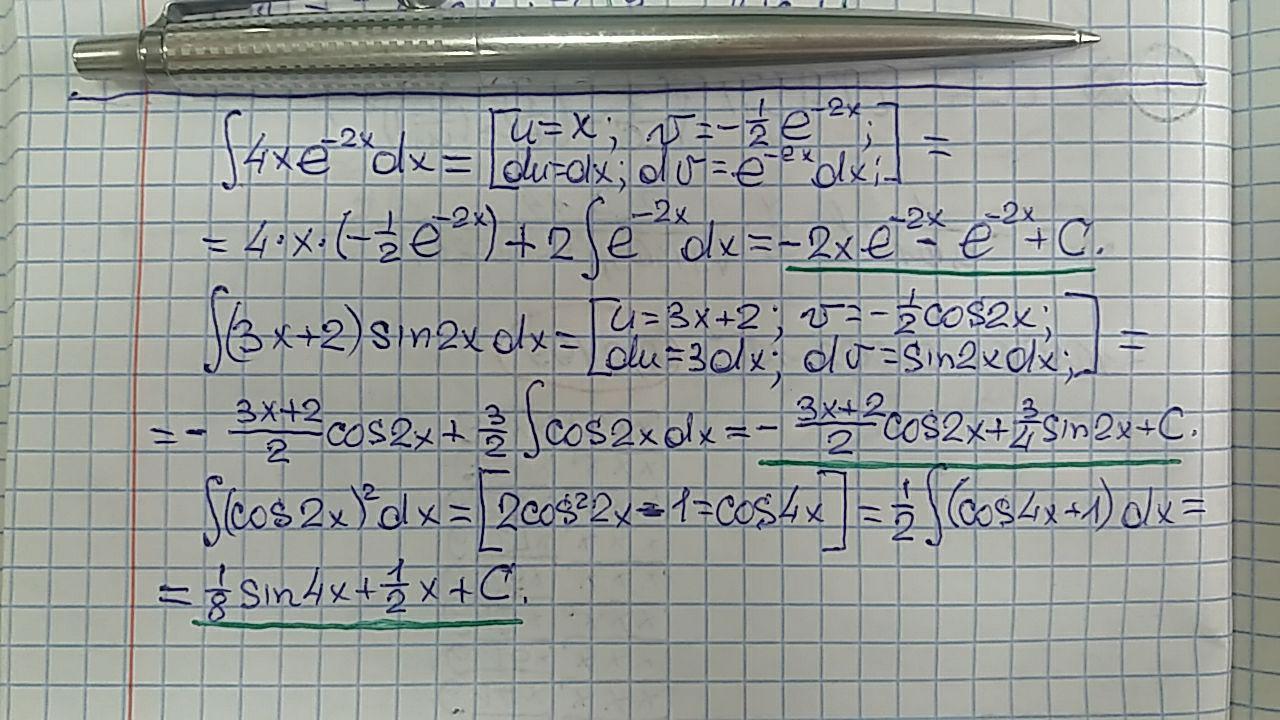 ∫4xe^{-2x}dx = [u=x; v=-1/2 e^{-2x}; du=dx; dv=e^{-2x}dx;] =
= 4·x·(-1/2 e^{-2x}) + 2∫e^{-2x}dx = -2xe^{-2x} - e^{-2x} + C.
∫(3x+2)sin2xdx = [u=3x+2; v=-1/2 cos2x; du=3dx; dv=sin2xdx;] =
= - (3x+2)/2 cos2x + 3/2 ∫cos2xdx = - (3x+2)/2 cos2x + 3/4 sin2x + C.
∫(cos2x)²dx = [2cos²2x-1=cos4x] = 1/2 ∫(cos4x+1)dx =
= 1/8 sin4x + 1/2 x + C.